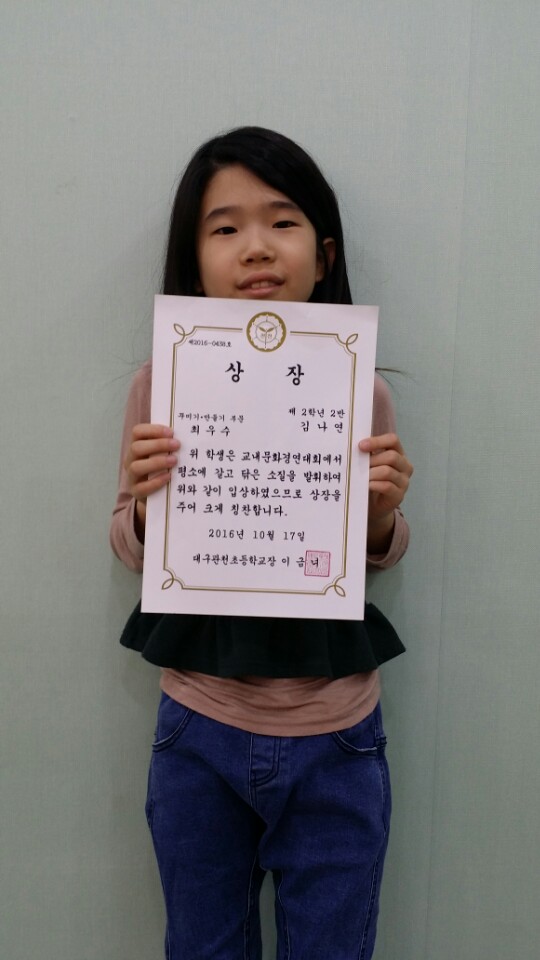 제2016-0438호
상 장
꾸미기·만들기 부문
제 2학년 2반
최우수
김나연
위 학생은 교내문화경연대회에서
평소에 갈고 닦은 소질을 발휘하여
위와 같이 입상하였으므로 상장을
주어 크게 칭찬합니다.
2016년 10월 17일
대구관천초등학교장 이 금 녀